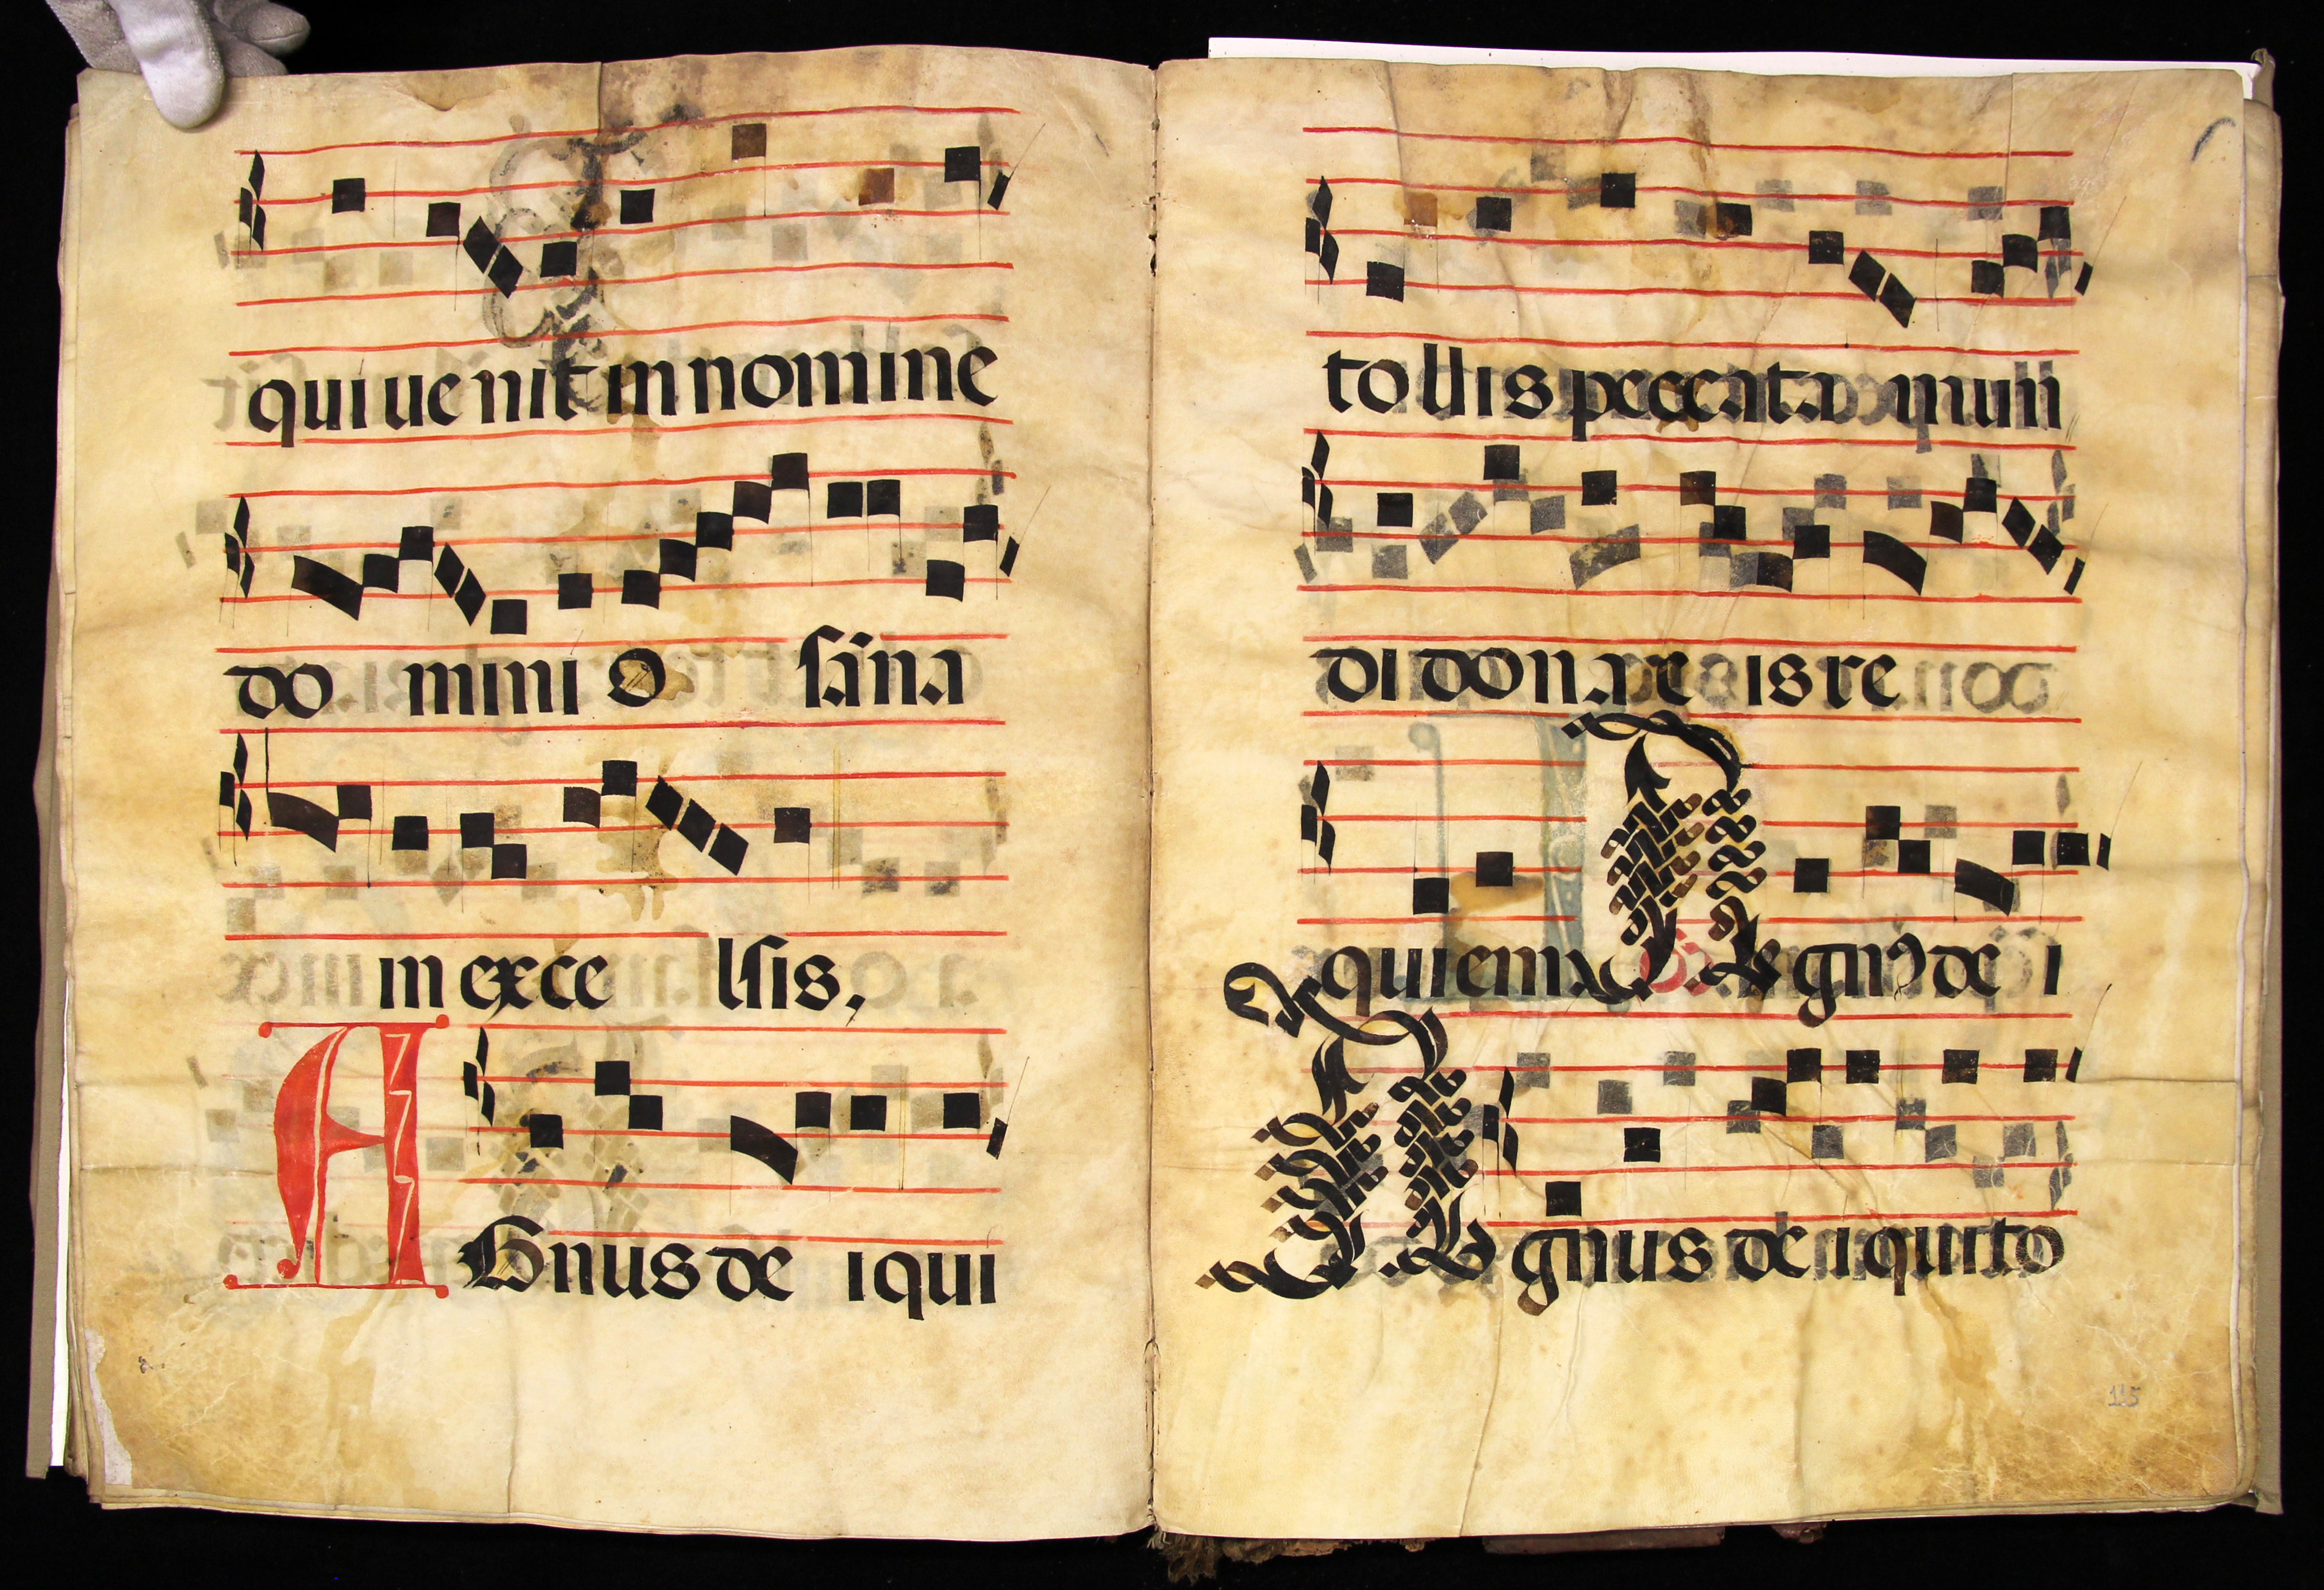 qui ue nit in nomine
do mini O sana
in exce lsis,
AGnus de i qui
tollis peccata mun
di dona e is re
quiem Agn9 de i
Agnus de i qui to
115